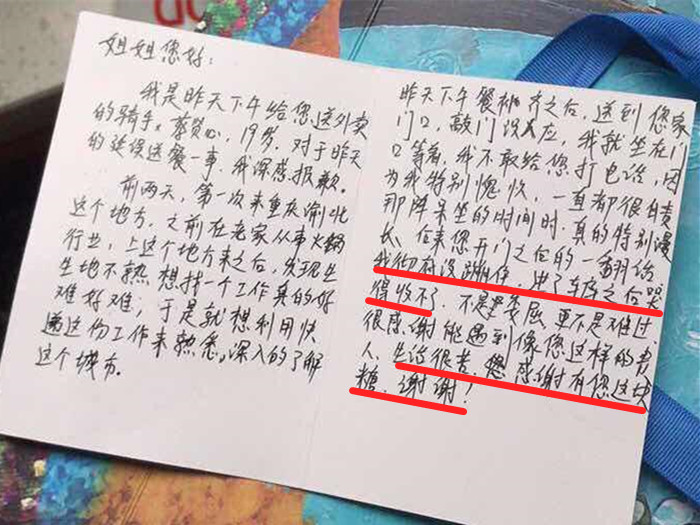 姐姐您好:
我是昨天下午给您送外卖
的骑手,蔡贤心,19岁.对于昨天
的延误送餐一事.我深感抱歉。
前两天,第一次来重庆渝北
这个地方.之前在老家从事火锅
行业,上这个地方来之后,发现生
生地不熟想找一个工作真的好
难好难,于是就想利用快
递这份工作来熟悉,深入的了解
这个城市.
昨天下午餐补齐之后,送到您家
门口,敲门没反应,我就坐在门
口等着.我不敢给您打电话,因
为我特别愧疚,一直都很自责
那阵呆坐的时间时.真的特别漫
长.后来您开门之后的一翻话
我彻底没绷住,进了车库之后哭
得收不了.不是委屈更不是难过.
很感谢能遇到像您这样的贵
人.生活很苦,您感谢有您这块
糖.谢谢!